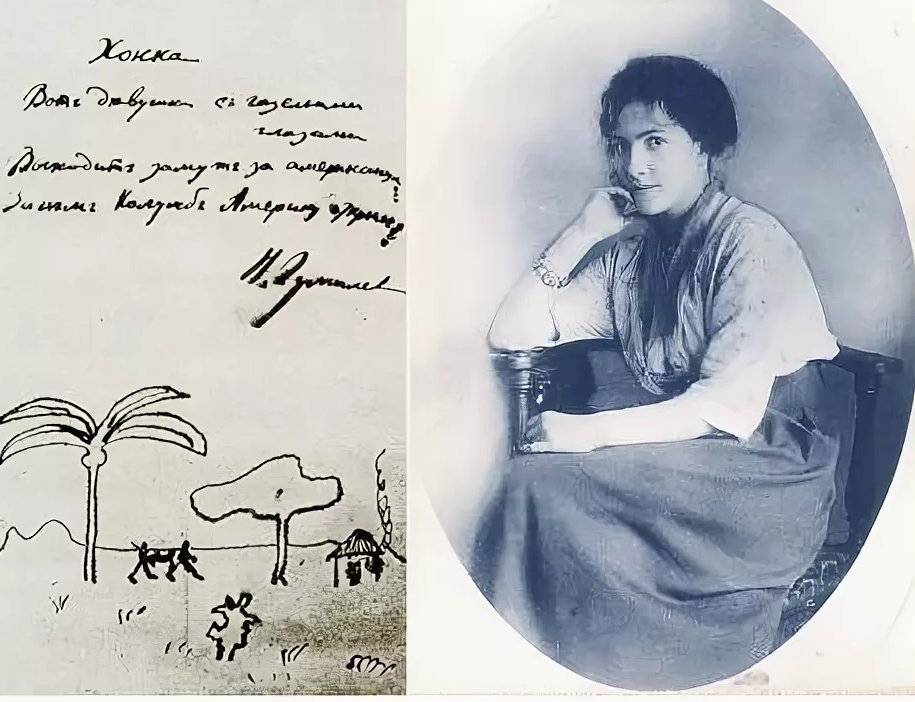 Хокка
Вотъ дѣвушка съ газельими
глазами
Выходитъ замужъ за американца
Зачѣмъ Колумбъ Америку открылъ?
Н. Гумилев